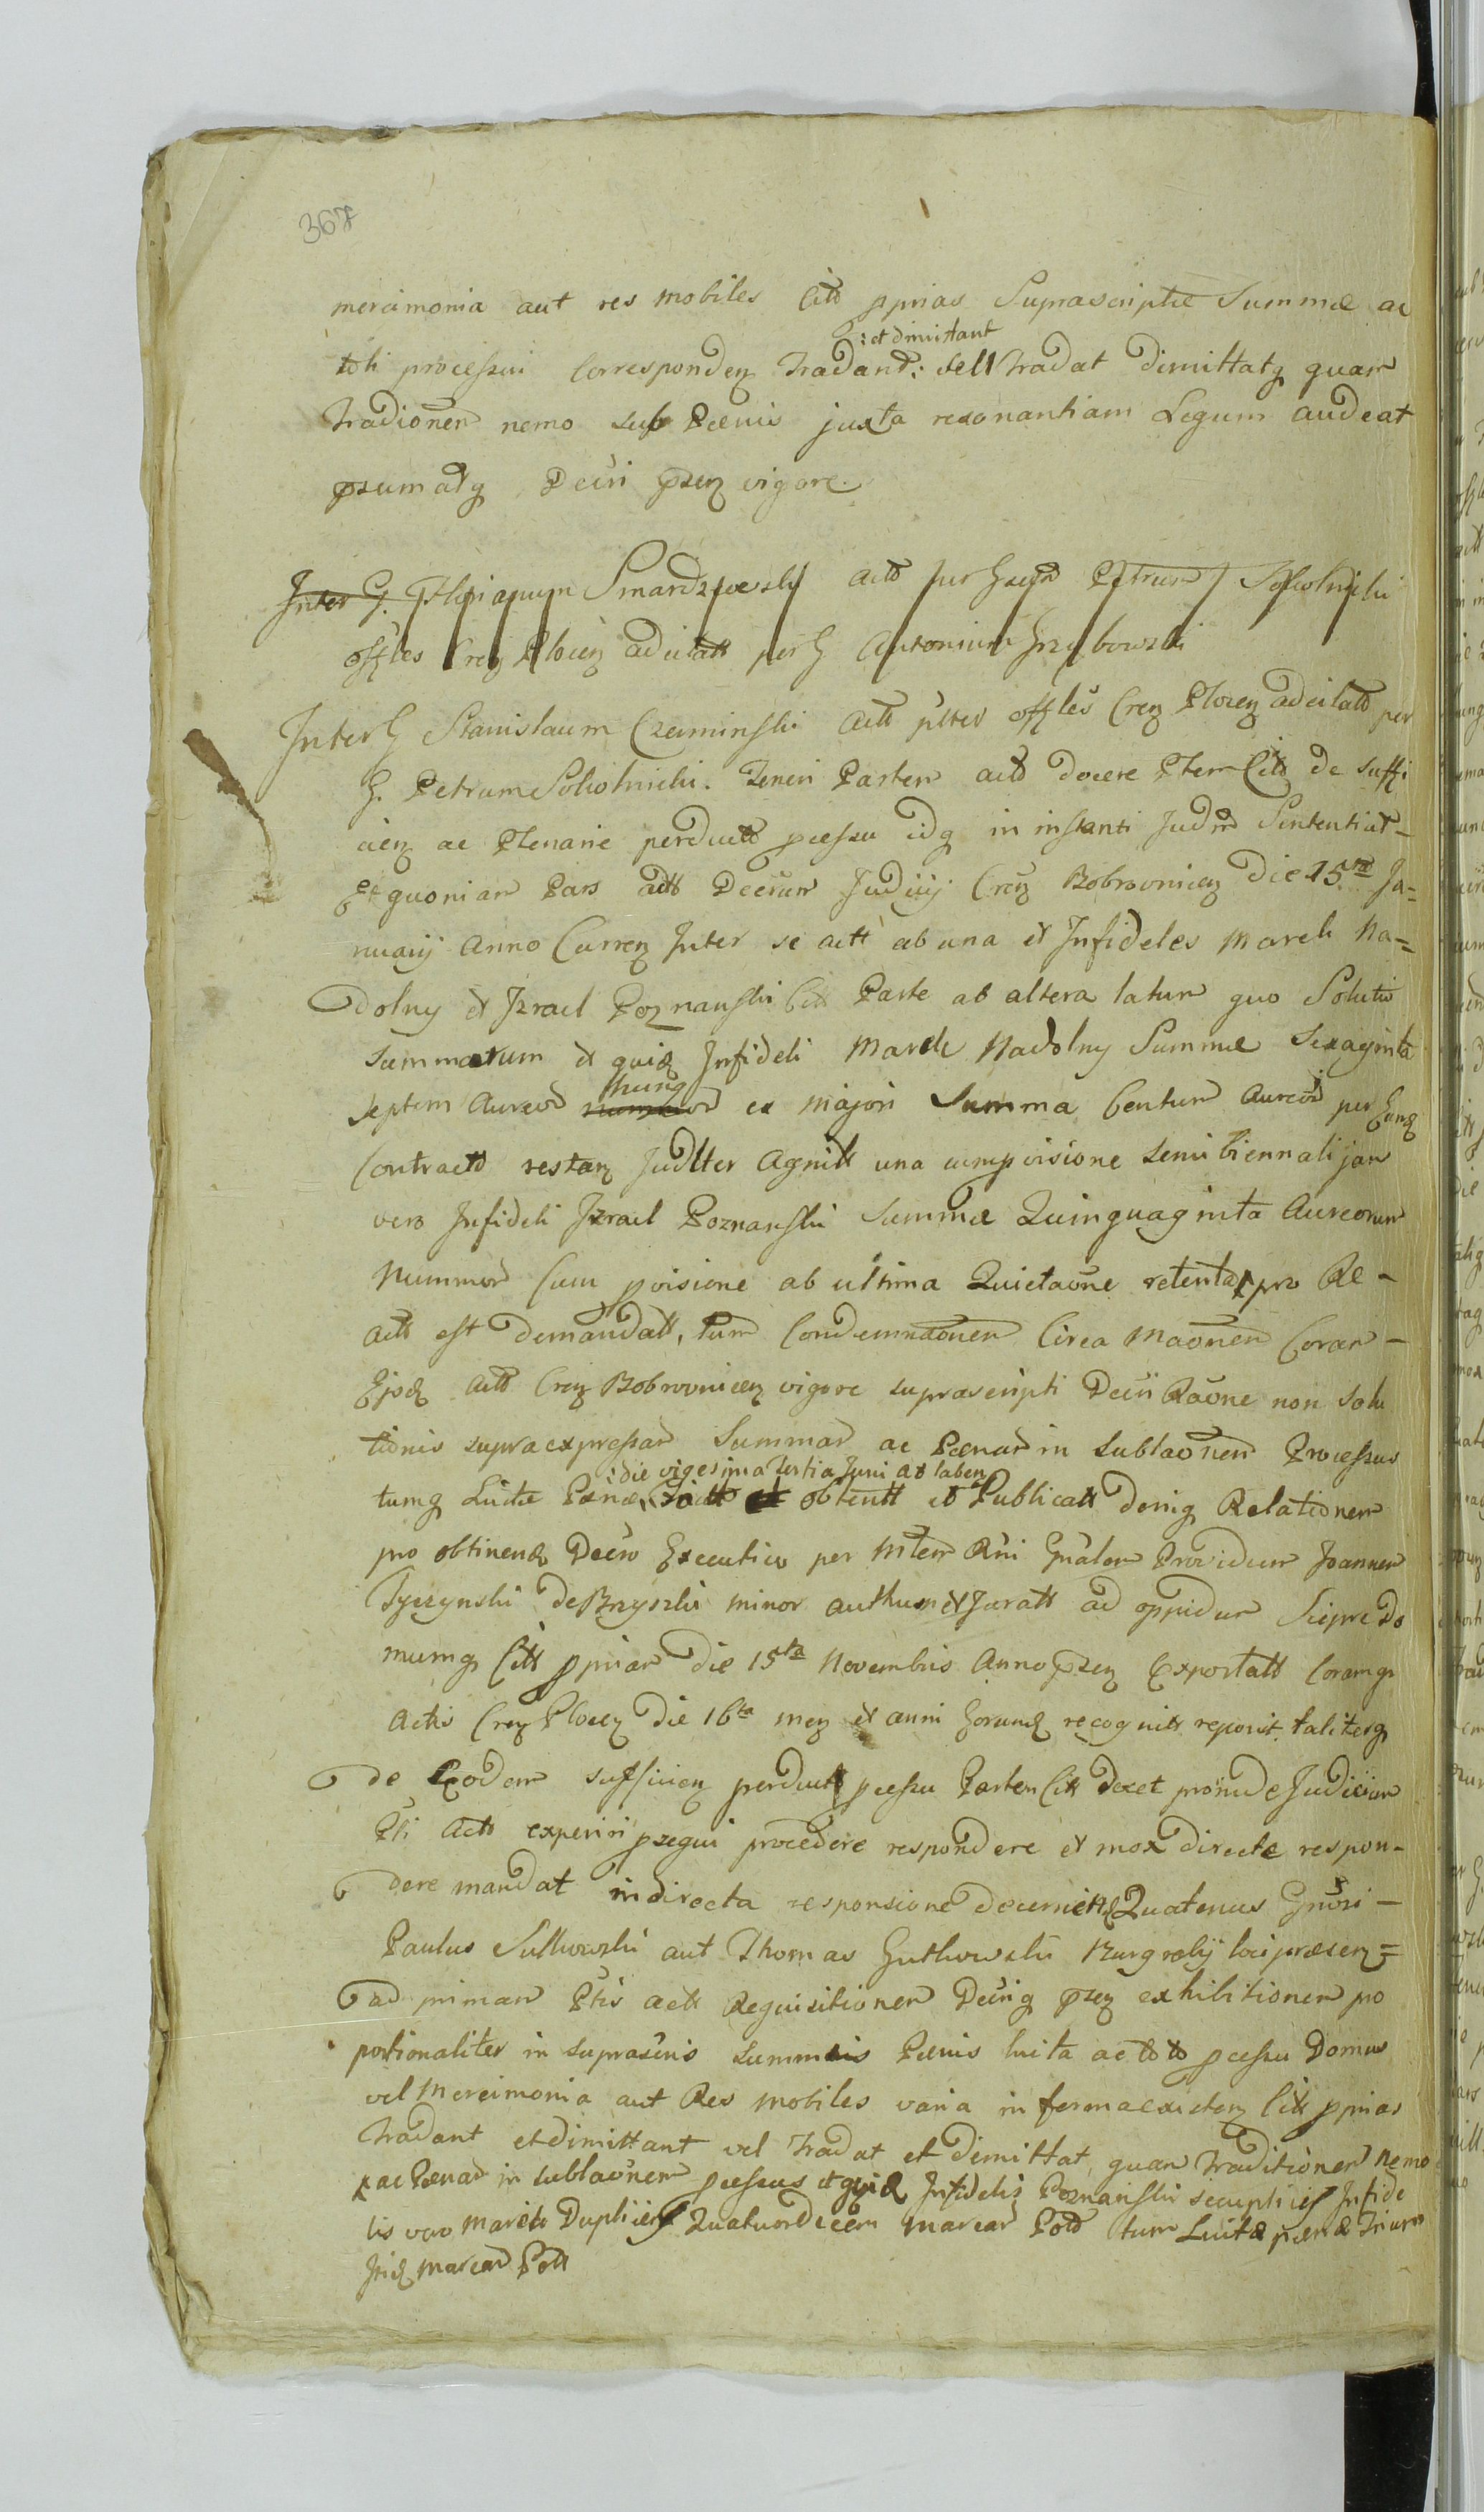 367
mercimonia aut res mobiles Citt pprias Suprascriptæ Summæ ac
:et dimittant
toti processui Corresponden tradant: Vell tradat dimittatq quam
traditionem nemo sub Pœnis juxta resonantiam Legum audeat
psumatq Decri psen vigore.
Inter G. Floriapum Smardzewski actt per Petrum Sokolnicki
offles Cren Plocen adcitatt per G Antonium Grzybowski
Inter G Stanislaum Czeminski actt pltes offles Cren Plocen adcitatt per
G. Petrum Sokolnicki. Teneri Partem actt docere Ptem Citt de suffi
cien ac Plenarie perductt pcessu idq in instanti Judm Sententiat-
Et quoniam Pars actt Decrum Judicij Cren Bobrovnicen die 15ta Ja=
nuarij Anno Curren Inter se actt ab una et Infideles Marek Na=
dolny et Izrael Poznanski Citt Parte ab altera latum quo Solutio
Summarum et quid Infideli Marek Nadolny Summæ Sexaginta
hung
Septem Aureor ex majori Summa Centum Aureor per Eund
Contractt restan Judlter Agnitt una cum pvisione semi biennali jam
vero Infideli Izrael Poznanski Summæ Quinquaginta Aureorum
Nummor Cum pvisione ab ultima Quietaone retenta pro Re-
actt est demandatt, tum Condemnaonem Circa Maonem Coram-
Ejsd actt Cren Bobrovnicen vigore suprascripti Decri Raone non solu
tionis supraexpressar Summar ac Pœnar in sublaonem Processus
:die vigesima tertia Juni ao laben
tumq Luitæ Pœnæ obtentt et Publicatt deniq Relationem
pro obtinend Decro Executivo per Mtem Rni Gnalem Providum Joannem
Tyczynski de Brzyszki minor authum et Juratt ad oppidum Sierpc Do
mumq Citt ppriam die 15ta Novembris Anno psen Exportatt Coramq
Actis Cren Plocen die 16ta men et anni Eorund recognitt reposit. taliterq
de Eodem sufficien perductt pcessu Partem Citt docet proinde Judicium
Pti Actt experiri psequi procedere respondere et mox directe respon-
dere mandat indirecta responsione decernitq Quatenus Gnosi-
Paulus Sulkowski aut Thomas Gutkowski Burgrabij loci præsen=
ad primam Ptis actt Requisitionem Decriq psen exhibitionem pro
portionaliter in suprascris summis Pœnis luita ac toto pcessu Domus
vel Mercimonia aut Res mobiles varia in forma existen Citt pprias
tradant et dimittant vel tradat et dimittat, quam traditionem nemo
ac Pœnar in sublaonem pcessus et quid Infidelis Poznanski Infide
lis vero Marek Duplicis Quatuordecem Marcar Pold tum Luitæ pœnæ trium
Marcar Poll